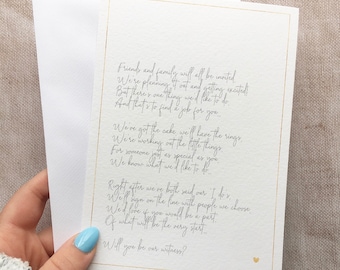 Friends and family will all be invited
We're planning it out and getting excited
But there's one thing we'd like to do
And that's to find a job for you

We've got the cake, we'll have the rings
We're working out the little things
For someone just as special as you
We know what we'd like to do

Right after we've both said our 'I do's
We'll sign on the line with people we choose
We'd love if you would be a part
Of what will be the very start

Will you be our witness?